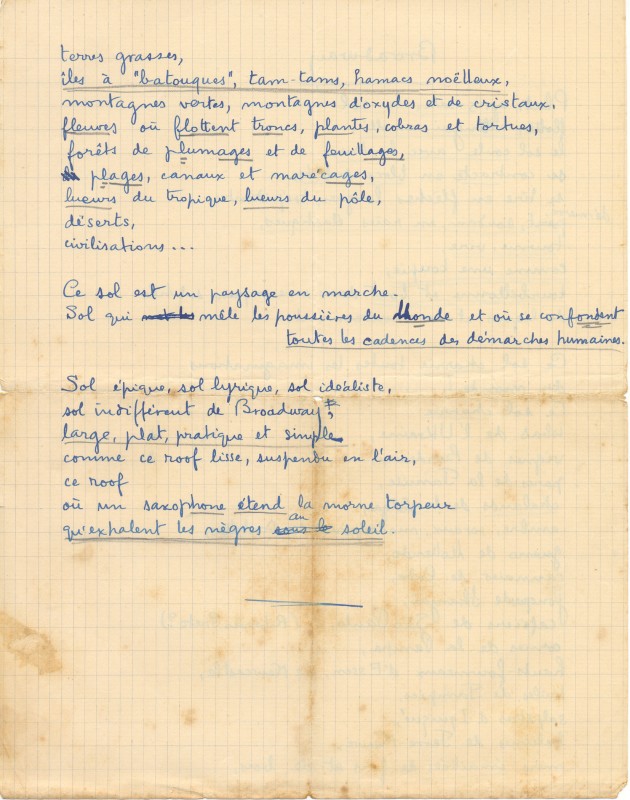 terres grasses,
îles à "batouques", tam-tams, hamacs moëlleux,
montagnes vertes, montagnes d'oxydes et de cristaux,
fleuves où flottent troncs, plantes, cobras et tortues,
forêts de plumages et de feuillages,
plages, canaux et marécages,
lueurs du tropique, lueurs du pôle,
déserts,
civilisations...
Ce sol est un paysage en marche.
Sol qui mêle les poussières du Monde et où se confondent
toutes les cadences des démarches humaines.
Sol épique, sol lyrique, sol idéaliste,
sol indifférent de Broadway,
large, plat, pratique et simple
comme ce roof lisse, suspendu en l'air,
ce roof
où un saxophone étend la morne torpeur
qu'exhalent les nègres sous le au soleil.